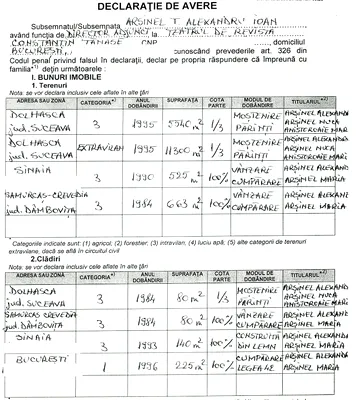 DECLARAŢIE DE AVERE
Subsemnatul/Subsemnata ARŞINEL T ALEXANDRU IOAN
având funcţia de DIRECTOR ADJUNCT la TEATRUL DE REVISTA
CONSTANTIN TANASE CNP , domiciliul
BUCUREŞTI, cunoscând prevederile art. 326 din
Codul penal privind falsul în declaraţii, declar pe propria răspundere că împreună cu
familia*1) deţin următoarele:
I. BUNURI IMOBILE
1. Terenuri
Nota: se vor declara inclusiv cele aflate în alte ţări
ADRESA SAU ZONA CATEGORIA*) ANUL DOBÂNDIRII SUPRAFAŢA COTA PARTE MODUL DE DOBÂNDIRE TITULARUL*2)
DOLHASCA jud. SUCEAVA 3 1995 5540 m2 1/3 MOŞTENIRE PĂRINŢI ARŞINEL ALEXANDRU ARŞINEL NUCA
DOLHASCA jud. SUCEAVA EXTRAVILAN 1995 11300 m2 1/3 MOŞTENIRE PĂRINŢI ARŞINEL ALEXANDRU ARŞINEL NUCA
SINAIA 3 1990 525 m2 100% VÂNZARE CUMPĂRARE ARŞINEL ALEXAND ARŞINEL MARIA
SAMURCAŞ-CREVEDIA jud. DÂMBOVIŢA 3 1984 663 m2 100% VÂNZARE CUMPĂRARE ARŞINEL ALEXAND ARŞINEL MARIA
Categoriile indicate sunt: (1) agricol, (2) forestier, (3) intravilan, (4) luciu apă; (5) alte categorii de terenuri
extravilane, dacă se află în circuitul civil
2.Clădiri
Nota: se vor declara inclusiv cele aflate în alte ţări
ADRESA SAU ZONA CATEGORIA*) ANUL DOBÂNDIRII SUPRAFAŢA COTA PARTE MODUL DE DOBÂNDIRE TITULARUL*2)
DOLHASCA jud. SUCEAVA 3 1984 80 m2 1/3 MOŞTENIRE PĂRINŢI ARŞINEL ALEXAND ARŞINEL NUCA
SAMURCAŞ CREVEDIA jud. DÂMBOVIŢA 3 1984 80 m2 100% VÂNZARE CUMPĂRARE ARŞINEL ALEXAND ARŞINEL MARIA
SINAIA 3 1993 140 m2 100% CONSTRUITĂ DIN LEMN ARŞINEL ALEXAND ARŞINEL MARIA
BUCUREŞTI 1 1996 225 m2 100% CUMPĂRARE LEGEA 42 ARŞINEL ALEXAND ARŞINEL MARIA